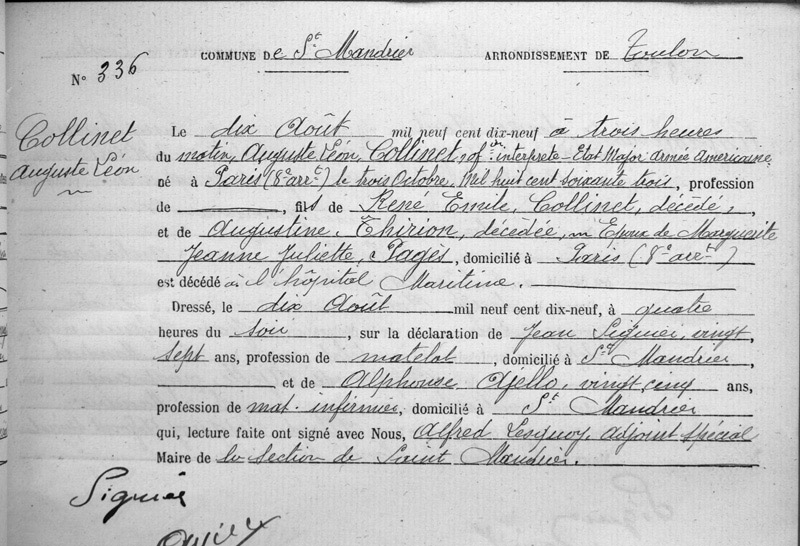 COMMUNE De St Mandrier ARRONDISSEMENT DE Toulon
N° 336
Collinet
Auguste Léon
Le dix Août mil neuf cent dix-neuf à trois heures
du matin, Auguste Léon, Collinet, offer interprete - Etat Major armée Americaine,
né à Paris (8e arrt) le trois Octobre, Mil huit cent soixante trois, profession
de , fils de René Emile, Collinet, décédé,
et de Augustine, Thirion, décédée, Epoux de Marguerite
Jeanne Juliette, Pagès, domicilié à Paris (8e arrt)
est décédé à l'hôpital Maritime.
Dressé, le dix Août mil neuf cent dix-neuf, à quatre
heures du soir, sur la déclaration de Jean Signier, vingt
sept ans, profession de matelot, domicilié à St Mandrier,
et de Alphonse Ajello, vingt cinq ans,
profession de mat. infirmier, domicilié à St Mandrier
qui, lecture faite ont signé avec Nous, Alfred adjoint spécial
Maire de la section de Saint Mandrier.